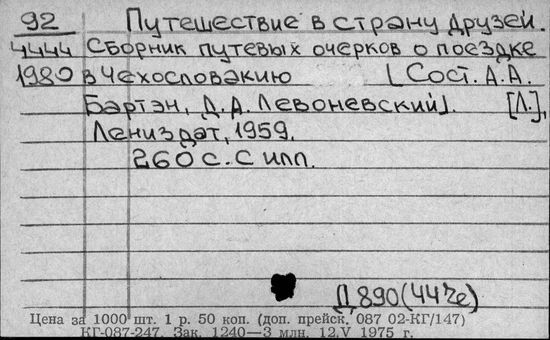 92 Путешествие в страну друзей.
4444 Сборник путевых очерков о поездке
1980 в Чехословакию [Сост. А.А.
Бартэн, Д.А. Левоневский]. [Л.],
Лениздат, 1959.
260 с. с илл.
Д 890(44Че)
Цена за 1000 шт. 1 р. 50 коп. (доп. прейск. 087 02-КГ/147)
КГ-087-247. Зак. 1240—3 млн. 12.V 1975 г.